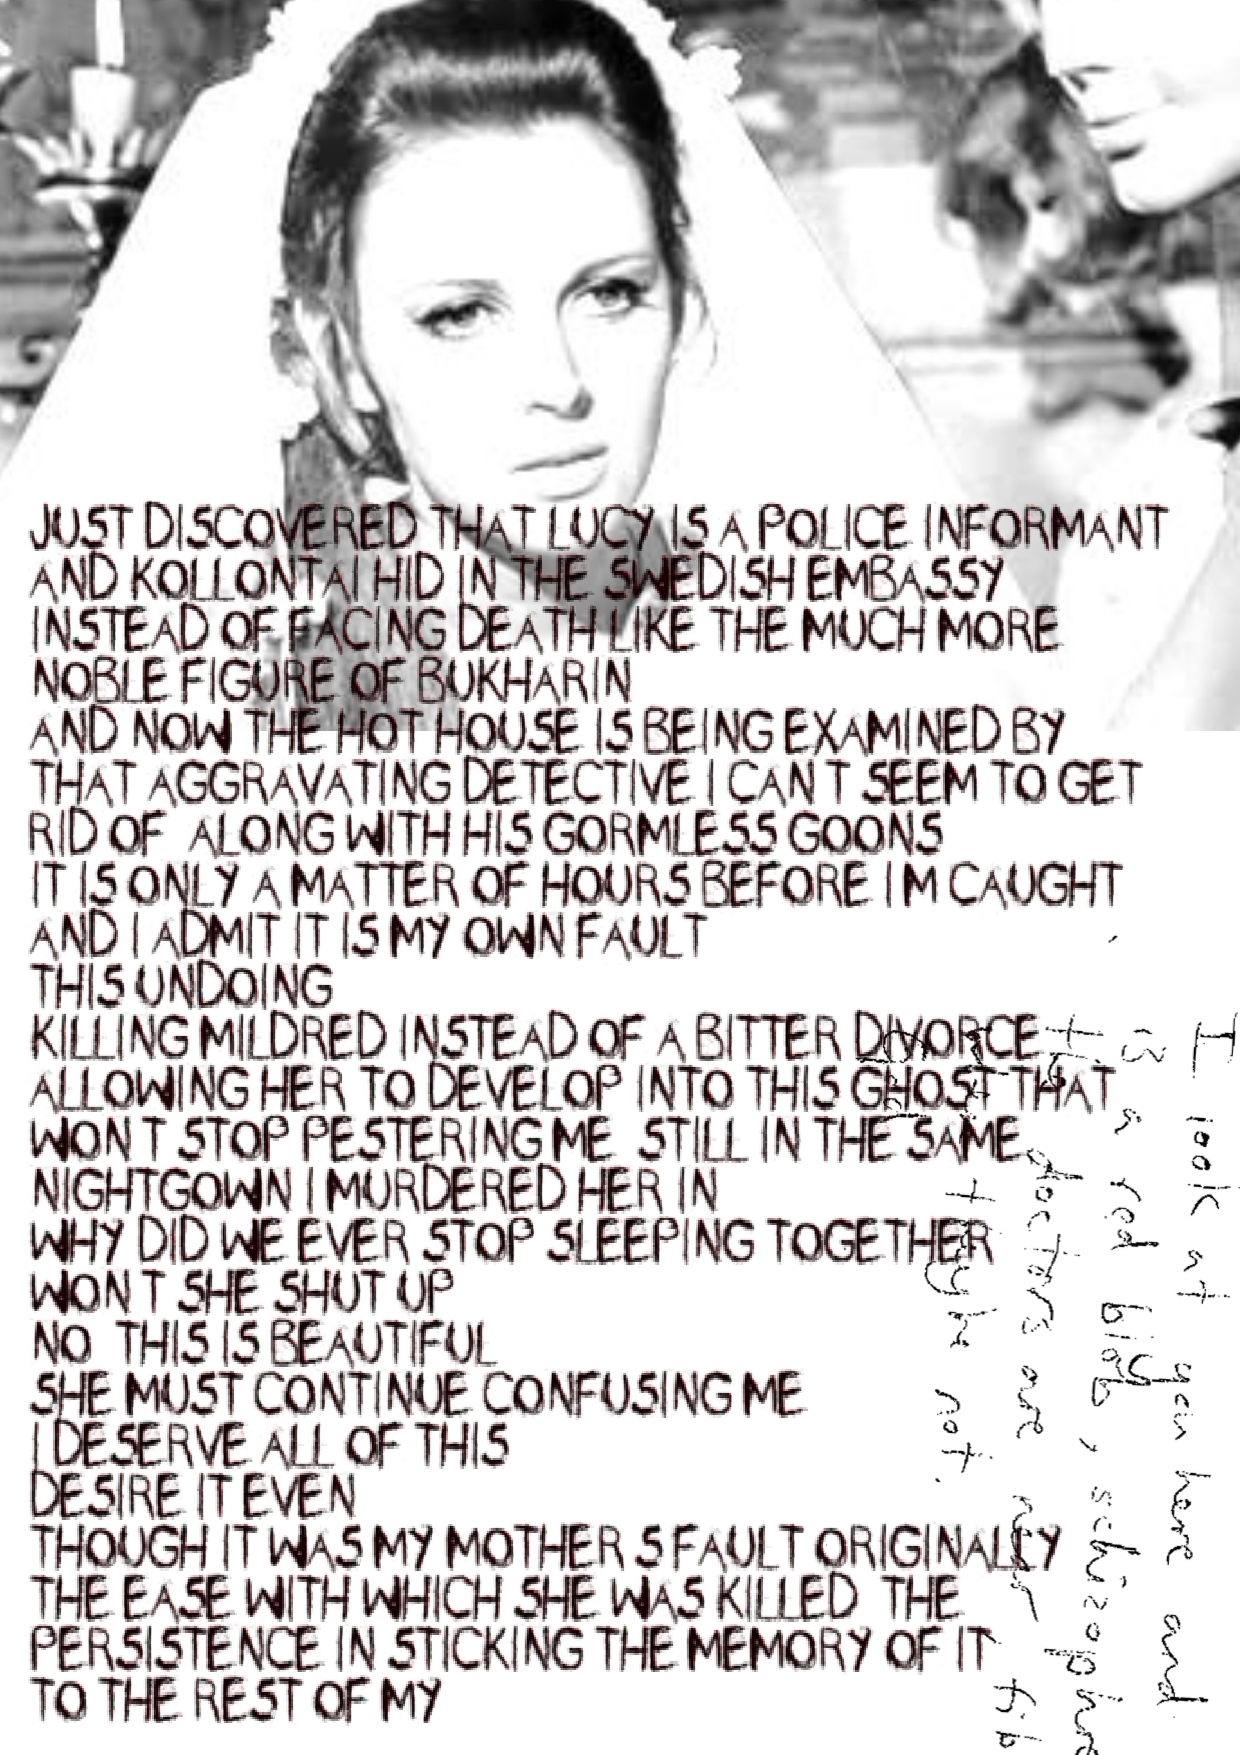 JUST DISCOVERED THAT LUCY IS A POLICE INFORMANT
AND KOLLONTAI HID IN THE SWEDISH EMBASSY
INSTEAD OF FACING DEATH LIKE THE MUCH MORE
NOBLE FIGURE OF BUKHARIN
AND NOW THE HOT HOUSE IS BEING EXAMINED BY
THAT AGGRAVATING DETECTIVE I CAN T SEEM TO GET
RID OF ALONG WITH HIS GORMLESS GOONS
IT IS ONLY A MATTER OF HOURS BEFORE I M CAUGHT
AND I ADMIT IT IS MY OWN FAULT
THIS UNDOING
KILLING MILDRED INSTEAD OF A BITTER DIVORCE
ALLOWING HER TO DEVELOP INTO THIS GHOST THAT
WON T STOP PESTERING ME STILL IN THE SAME
NIGHTGOWN I MURDERED HER IN
WHY DID WE EVER STOP SLEEPING TOGETHER
WON T SHE SHUT UP
NO THIS IS BEAUTIFUL
SHE MUST CONTINUE CONFUSING ME
I DESERVE ALL OF THIS
DESIRE IT EVEN
THOUGH IT WAS MY MOTHER S FAULT ORIGINALLY
THE EASE WITH WHICH SHE WAS KILLED THE
PERSISTENCE IN STICKING THE MEMORY OF IT
TO THE REST OF MY
I look at you here and
is a red blob, schizophre
the doctors are near fib
maybe not.